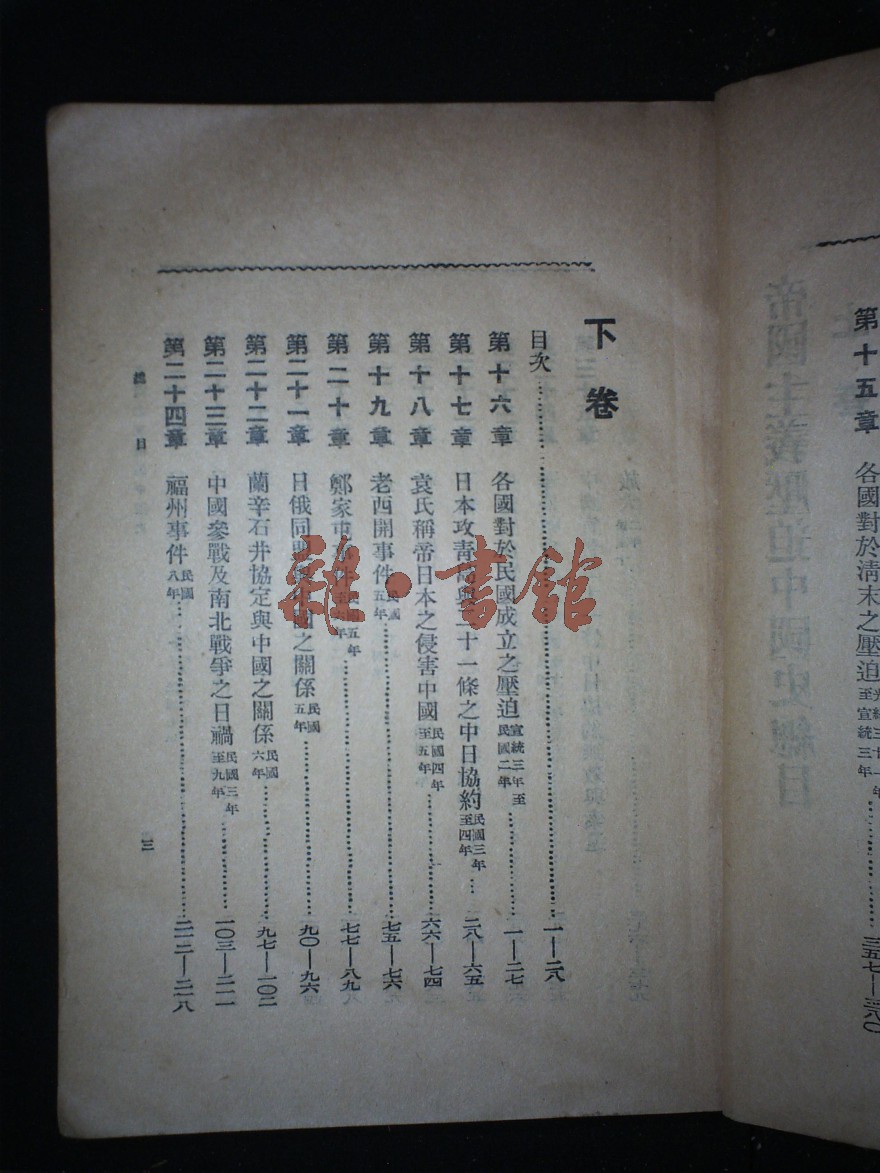 第十五章　各國對於清末之壓迫光緒三十一年至宣統三年……三五七—三八〇
下卷
目次……一—二八
第十六章　各國對於民國成立之壓迫宣統三年至民國二年……一—二七
第十七章　日本攻青島與二十一條之中日協約民國三年至四年……二八—六五
第十八章　袁氏稱帝日本之侵害中國民國四年至五年……六六—七四
第十九章　老西開事件民國五年……七五—七六
第二十章　鄭家屯事件民國五年至六年……七七—八九
第二十一章　日俄同盟與中國之關係民國五年……九〇—九六
第二十二章　蘭辛石井協定與中國之關係民國六年……九七—一〇二
第二十三章　中國參戰及南北戰爭之日禍民國三年至九年……一〇三—二一一
第二十四章　福州事件民國八年……二一二—二一八
總目
三
雜·書館